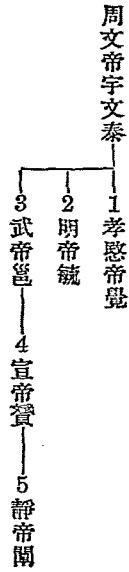 周文帝宇文泰
1孝愍帝覺
2明帝毓
3武帝邕
4宣帝贇
5靜帝闡